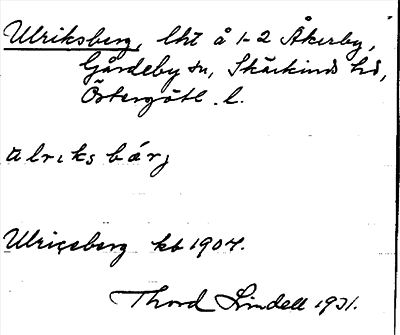 Ulriksberg, lht å 1-2 Åkerby,
Gårdeby sn, Skärkinds hd,
Östergötl. l.
ulriksbárj
Ulricsberg kb 1904.
Thord Lindell 1931.